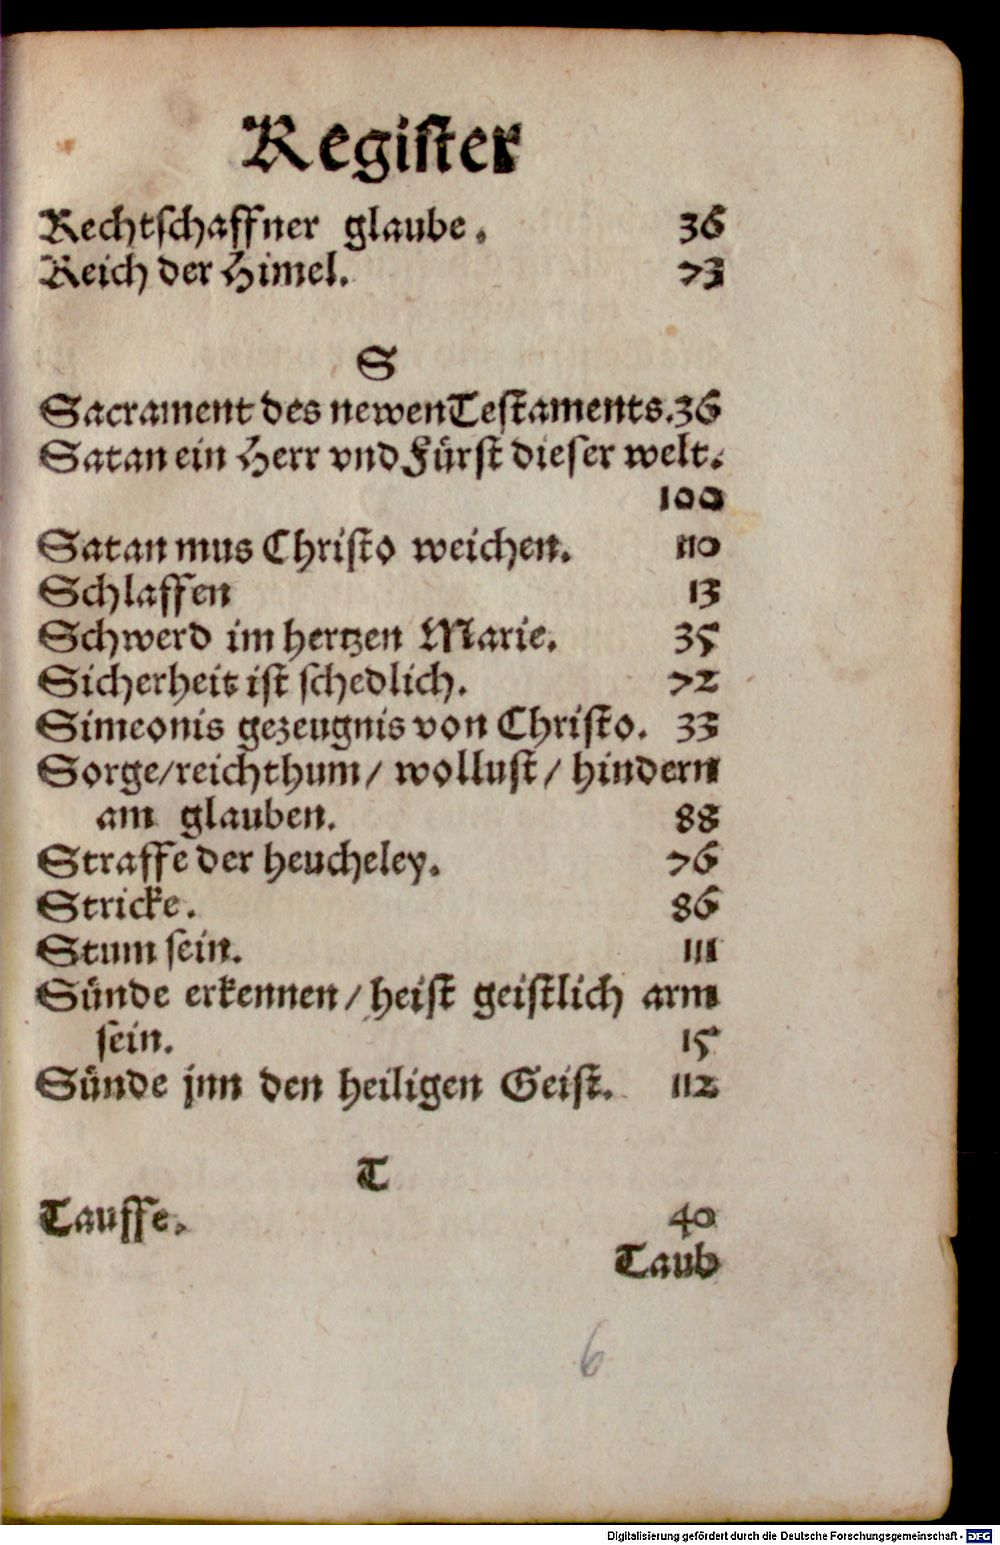 Register
Rechtschaffner glaube. 36
Reich der Himel. 73
S
Sacrament des newen Testaments. 36
Satan ein Herr vnd Fürst dieser welt.
100
Satan mus Christo weichen. 110
Schlaffen 13
Schwerd im hertzen Marie. 35
Sicherheit ist schedlich. 72
Simeonis gezeugnis von Christo. 33
Sorge/reichthum/ wollust/ hindern
am glauben. 88
Straffe der heucheley. 76
Stricke. 86
Stum sein. 111
Sünde erkennen/ heist geistlich arm
sein. 15
Sünde jnn den heiligen Geist. 112
T
Tauffe. 40
Taub
6
Digitalisierung gefördert durch die Deutsche Forschungsgemeinschaft - DFG